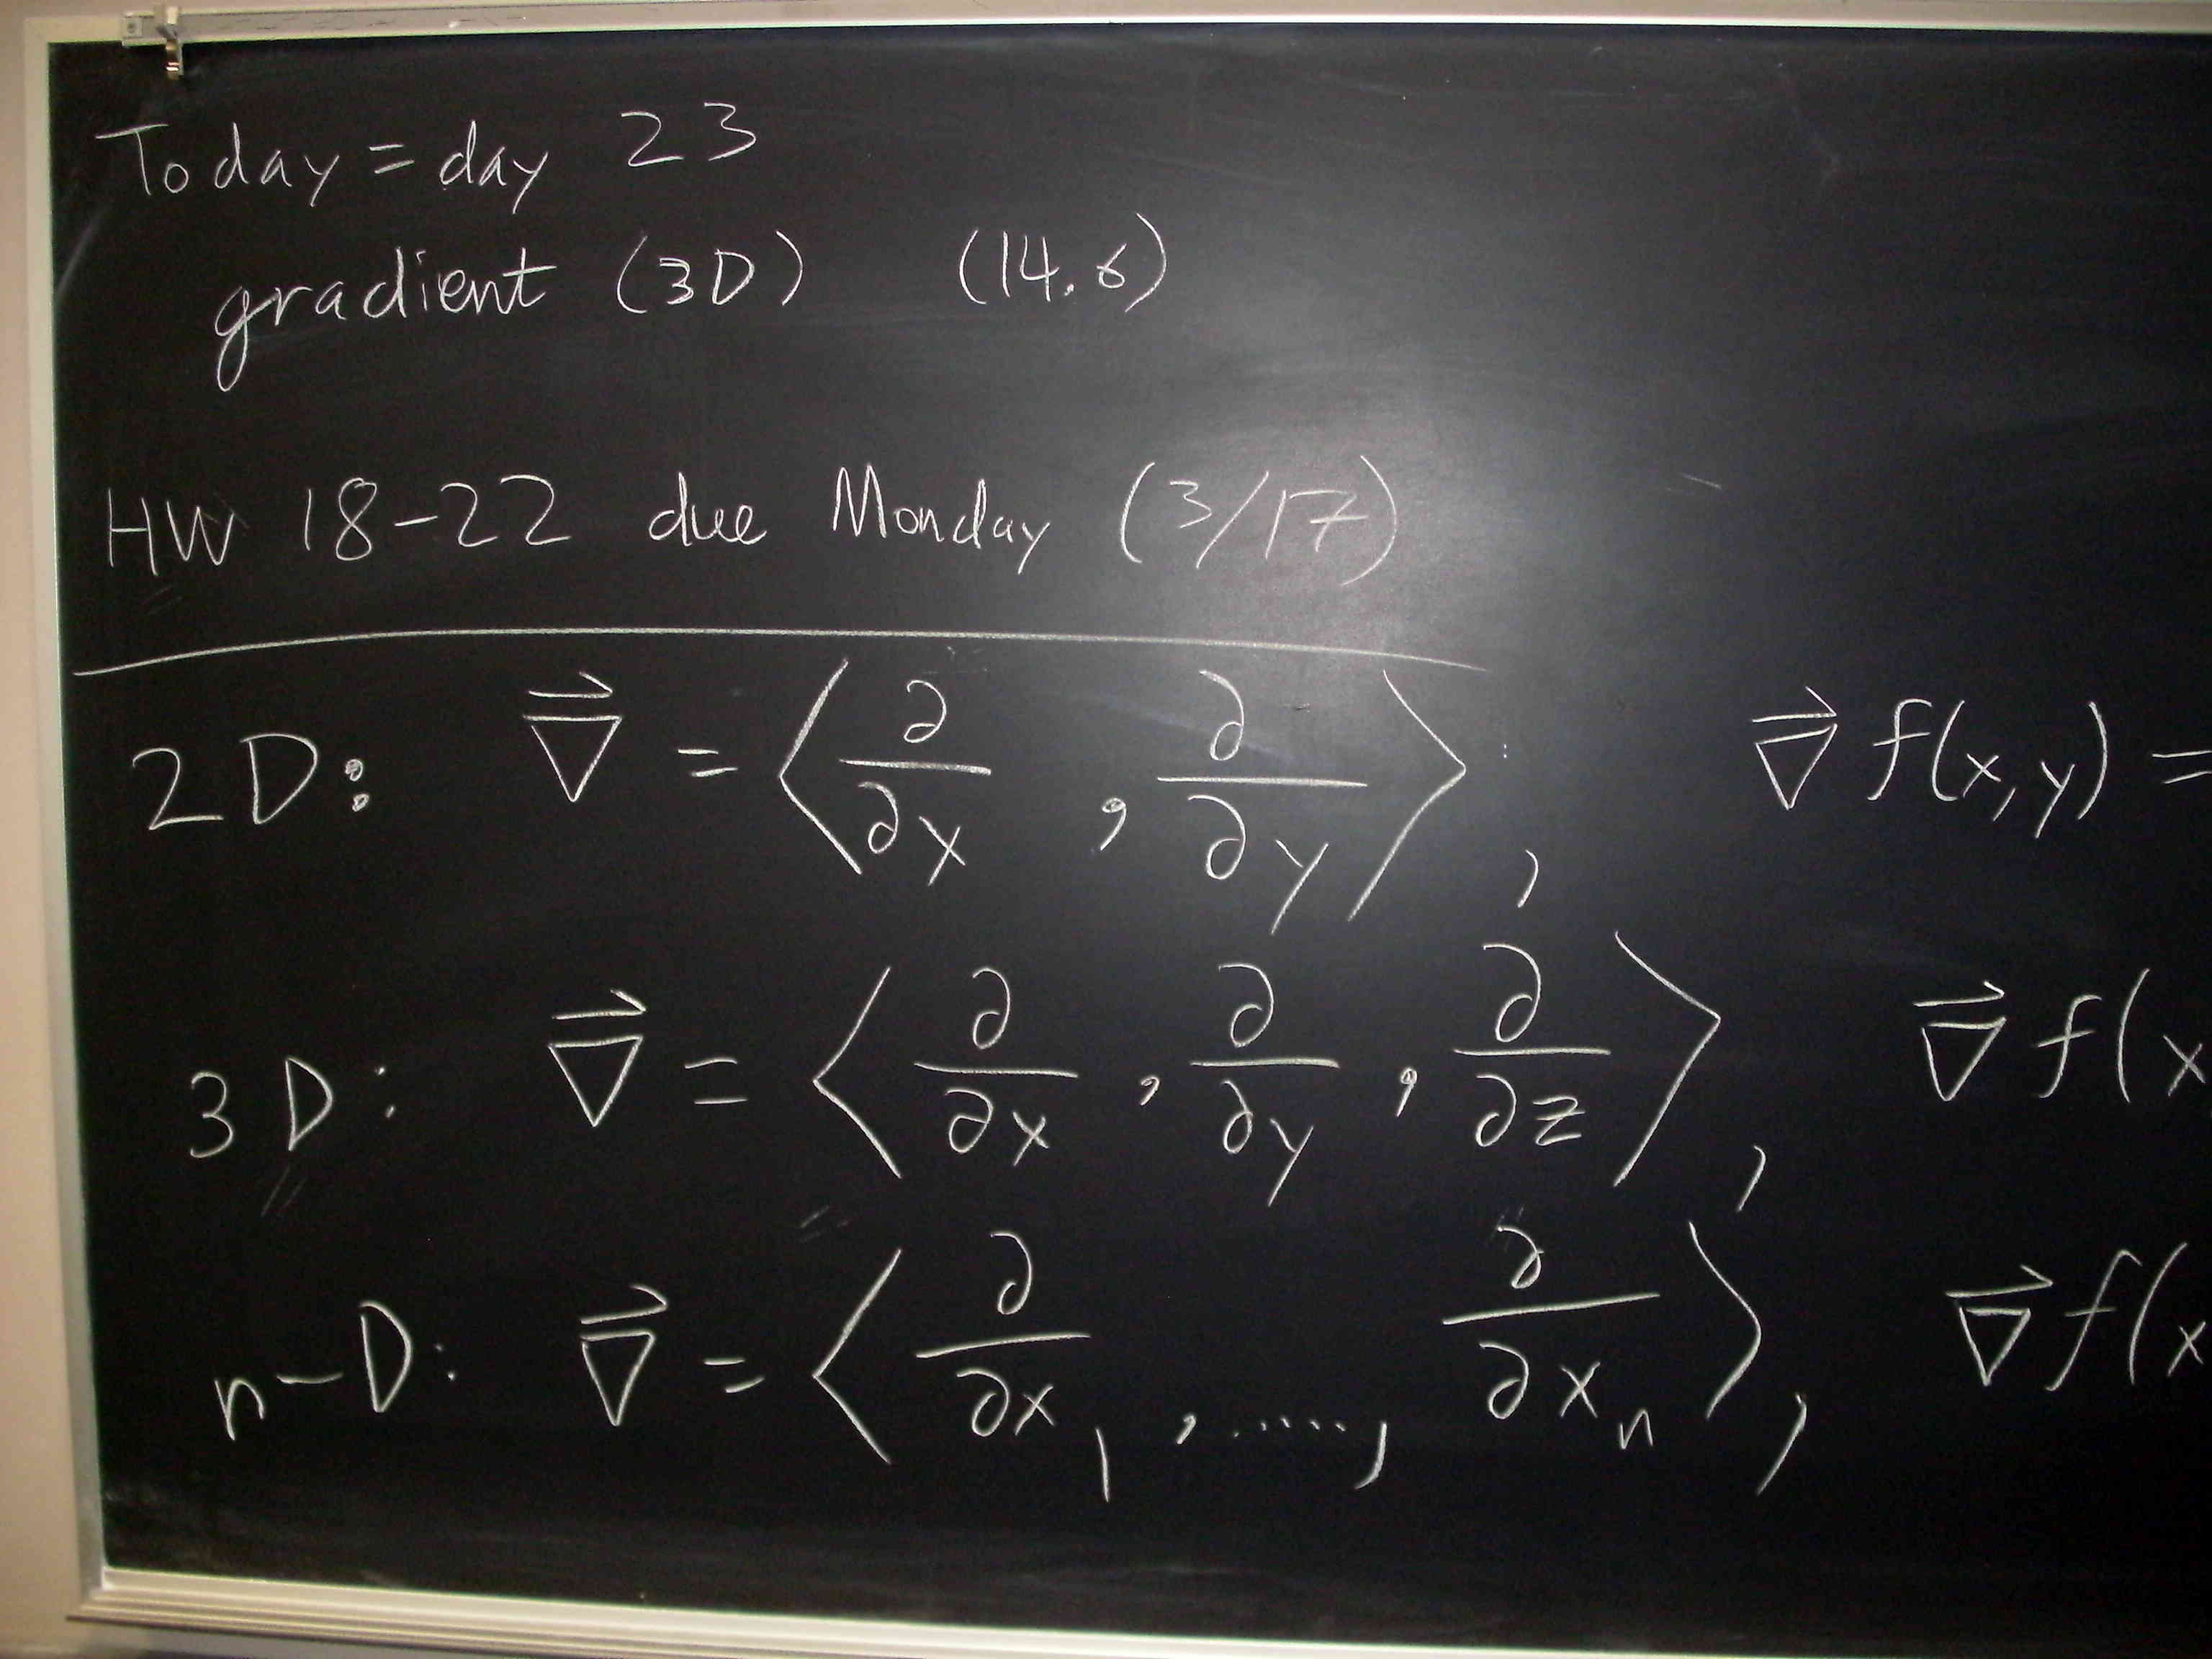 Today = day 23
gradient (3D) (14.6)
HW 18-22 due Monday (3/17)
2D: ∇⃗ = ⟨ ∂/∂x , ∂/∂y ⟩ , ∇⃗ f(x,y) =
3D: ∇⃗ = ⟨ ∂/∂x , ∂/∂y , ∂/∂z ⟩ , ∇⃗ f(x
n-D: ∇⃗ = ⟨ ∂/∂x₁ , ....., ∂/∂xₙ ⟩ , ∇⃗ f(x